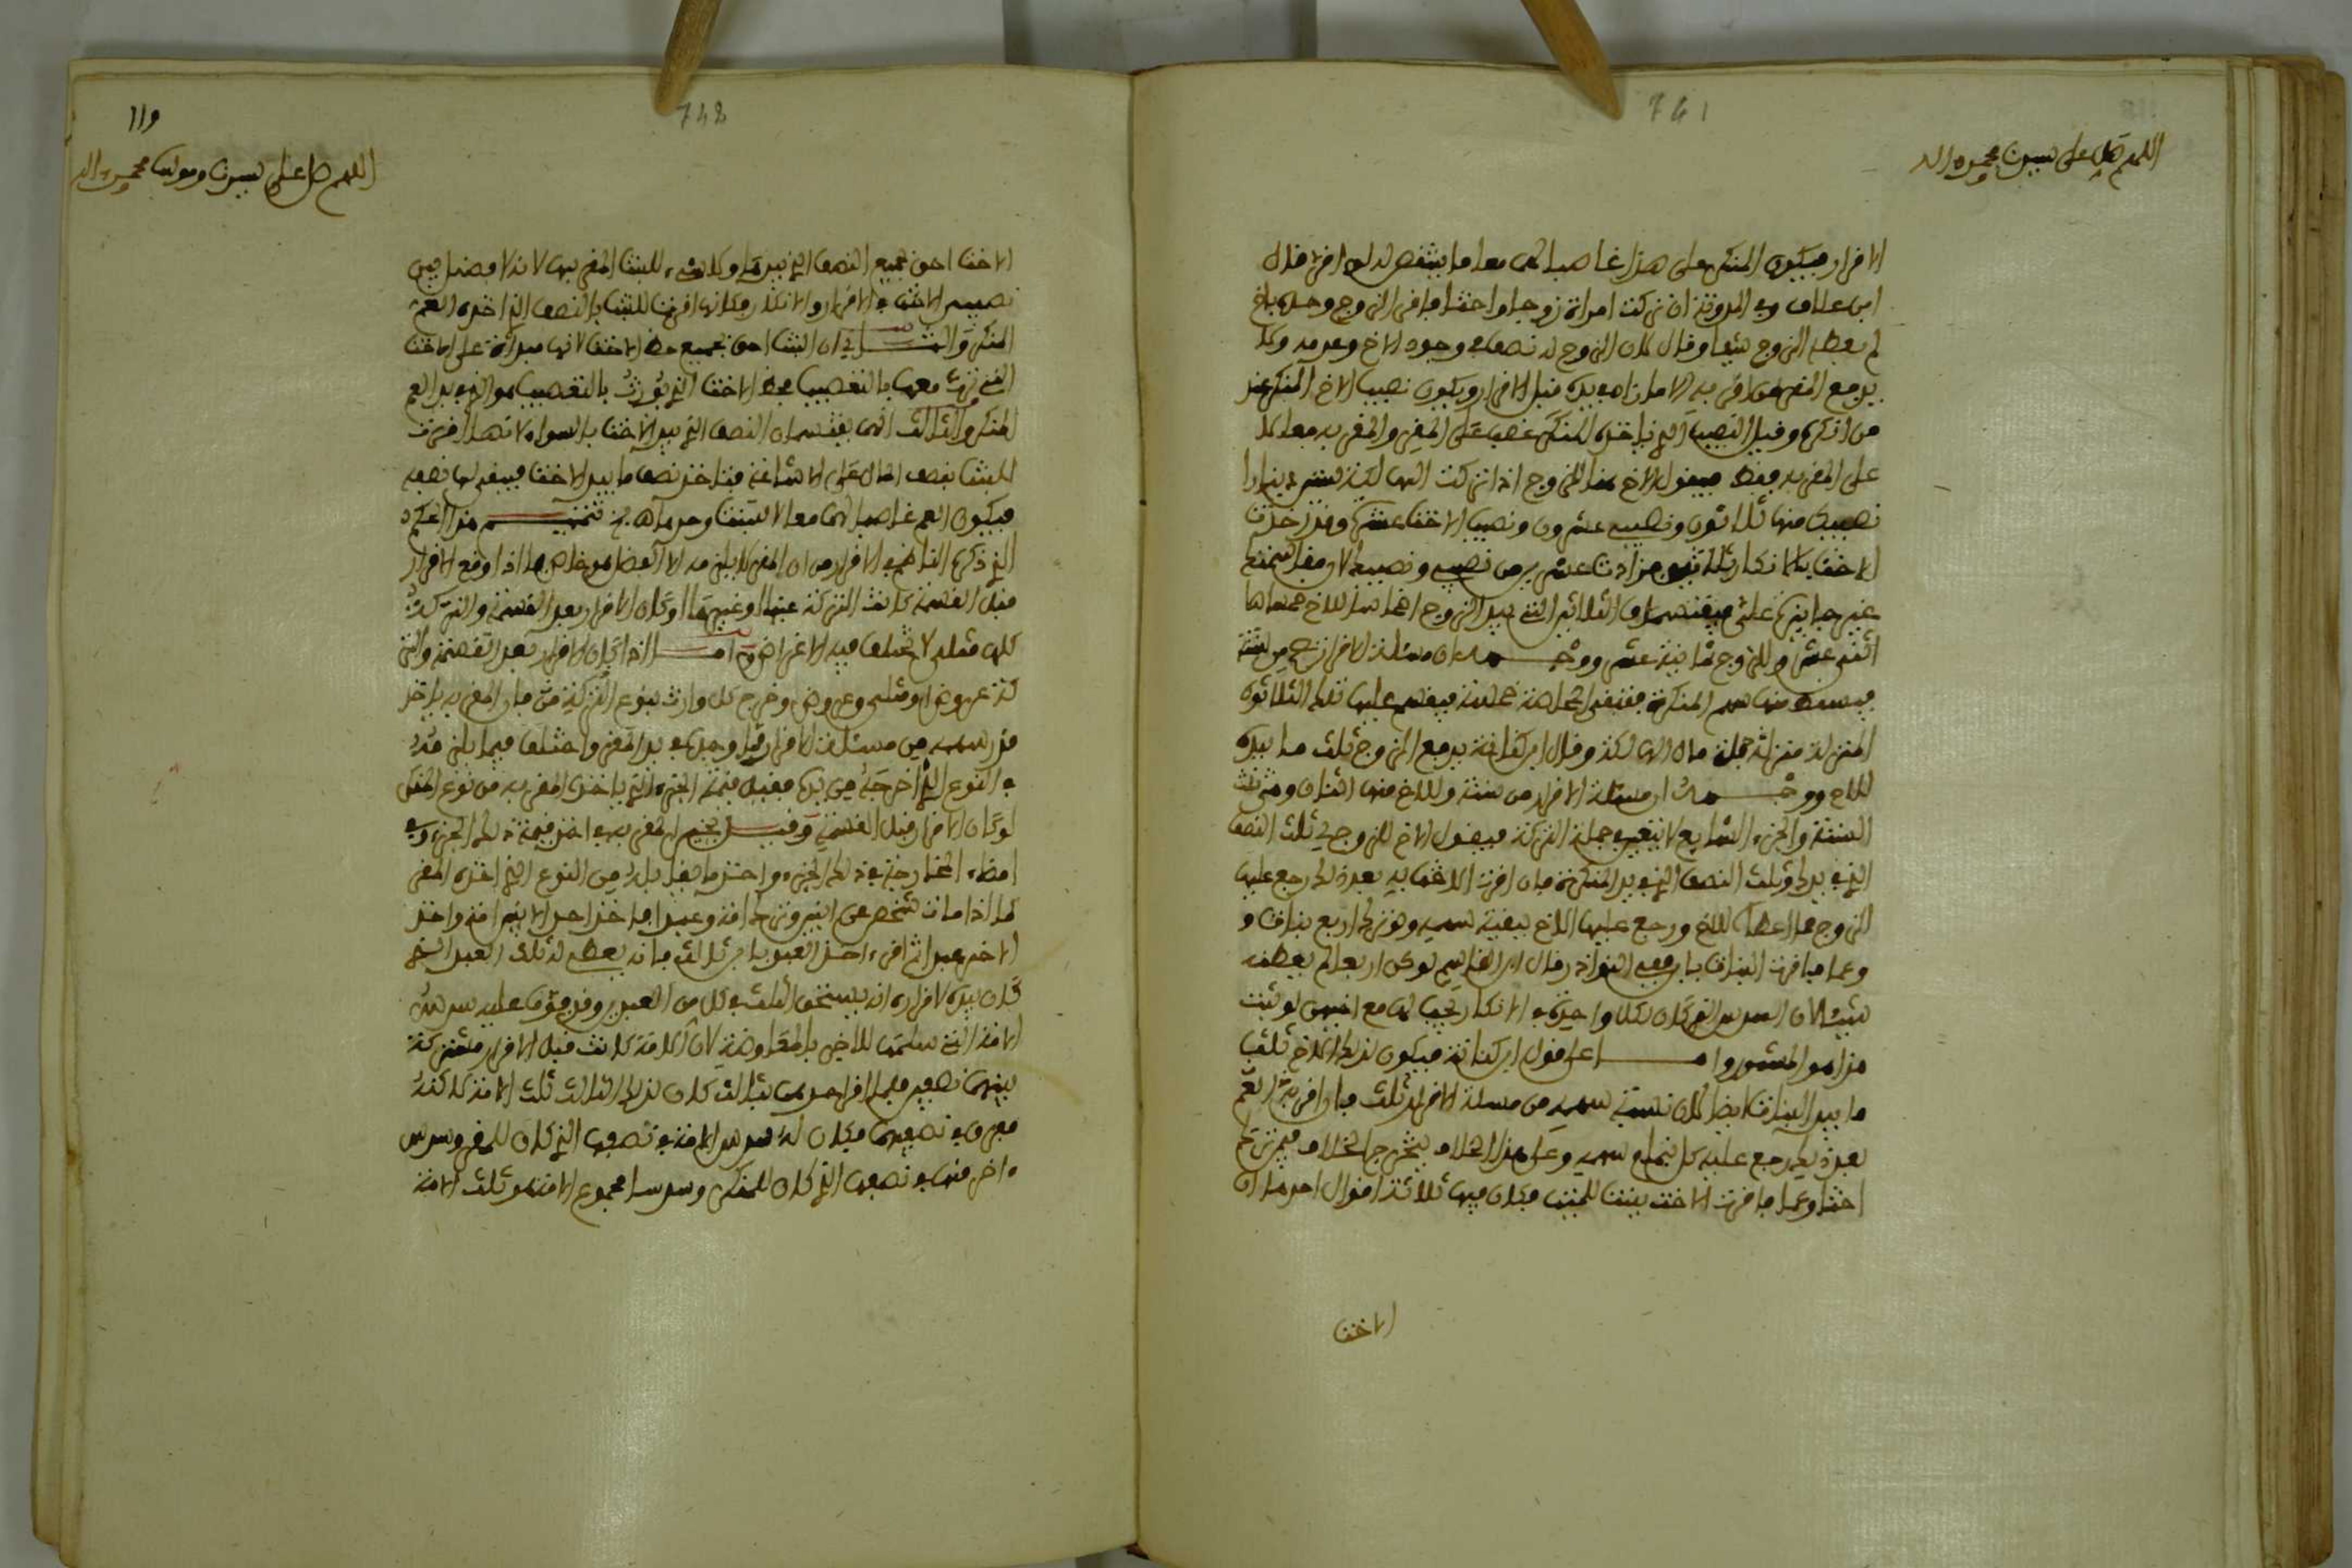 741
اللهم صل على سيدنا محمد واله
الاقرار فيكون المنكر على هذا غاصبا لهما معا ما ينتقص له لو اقر قال
ابن علاق وفي المدونة ان تركت امراة زوجا واختا فاقر الزوج وحده باخ
لم يعطه الزوج شيئا وقال لان الزوج له نصف في وجود الاخ وعدمه وكل
يدفع المقر من اقر به الا ما زاده بيده قبل الاقرار ويكون نصيب الاخ المنكر عند
من انكره وقيل النصيب الذي ياخذه المنكر غصب على المقر والمقر به معا لا
على المقر به فقط فيقول الاخ هنا للزوج اذا تركت الهالكة ستين دينارا
نصيبك منها ثلاثون ونصيبي عشرون ونصيب الاخت عشرة وقد اخذت
الاخت بالانكار ثلاثين فزادت عشرين من نصيبي ونصيبك
غير جايز فيقتسمان الثلاثين التي بيد الزوج اخماسا للاخ خمساها
اثنى عشر وللزوج ثمانية عشر ووجهه ان مسئلة الاقرار تصح من ستة
فيسقط منها سهم المنكرة فتبقى المحاصة خمسة فيقسم عليها تلك الثلاثون
المنزلة منزلة جملة مال الهالكة وقال ابن كنانة يدفع الزوج ثلث ما بيده
للاخ ووجهه ان مسئلة الاقرار من ستة وللاخ منها اثنان وهي ثلث
الستة والجزء الشايع لا يتغير بجملة التركة فيقول الاخ للزوج لي ثلث النصف
الذي بيدك وثلث النصف الذي بيد المنكرة فان اقرت الاخت به بعد ذلك رجع عليها
الزوج بما اعطا للاخ ورجع عليها الاخ ببقية سهمه ولو ترك اربع بنات و
وعما فاقرت البنات باخ ففي النوادر قال ابن القاسم لو كن اربعا لم يعطنه
شيئا لان السدس الذي كان لكل واحدة في الانكار يجب لها مع اخيهن لو ثبت
هذا هو المشهور واما على قول ابن كنانة فيكون لذلك الاخ ثلث
ما بيد البنات ايضا لان نسبة سهمه من مسئلة الاقرار ثلث فان اقر به العم
بعد ذلك رجع عليه كل بتمام سهمه وعلى هذا الخلاف يتخرج الخلاف فيمن ترك
اختا وعما فاقرت الاخت ببنت للميت فكان فيها ثلاثة اقوال احدها ان
الاخت
742
119
اللهم صل على سيدنا ومولانا محمد واله
الاخت احق بجميع النصف الذي بيدها ولا شيء للبنت المقر بها لانه لا فضل بين
نصيب الاخت في الاقرار والانكار فكانها اقرت للبنت بالنصف الذي اخذه العم
المنكر والثاني ان البنت احق بجميع حظ الاخت لانها مبداة على الاخت
التي ترث معها بالتعصيب فحظ الاخت الذي تورث بالتعصيب هو الذي بيد العم
المنكر والثالث انهما يقتسمان النصف الذي بيد الاخت بالسواء لانها اقرت
للبنت بنصف المال على الاشاعة فتاخذ نصف ما بيد الاخت فيبقى لها نصفه
فيكون العم غاصبا لهما معا لا للبنت وحدها تتميم هذا الحكم
الذي ذكره الناظم في الاقرار من ان المقر لا يلزمه الا الفضل هو خاص بما اذا وقع الاقرار
قبل القسمة كانت التركة عينا او غيرها او كان الاقرار بعد القسمة والتركة
كلها مثلي لا تختلف فيه الاغراض واما اذا كان الاقرار بعد القسمة والتر
كة عروض او مثلي وعروض وخرج كل وارث بنوع التركة فان المقر به ياخذ
قدر سهمه من مسئلة الاقرار فيما وجده بيد المقر واختلف فيما يلزمه
في النوع الذي اخرجه من يده فقيل قيمة الجزء الذي ياخذه المقر به من نوع المنكر
لو كان الاقرار قبل القسمة وقيل يخير المقر به في اخذ قيمة ذلك الجزء وفي
امضاء المعاوضة في ذلك الجزء واخذ ما يقابله من النوع الذي اخذه المقر
كما اذا مات شخص عن ابنين وترك امة وعبدا فاخذ احد الابنين امة واخذ
الاخر عبدا ثم اقر اخذ العبد بابن ثالث فانه يعطي له ثلث العبد الذي
كان بيده لاقراره انه يستحق الثلث في كل من العبدين وقد فوت عليه سدس
الامة التي سلمها للاخر بالمعاوضة لان الامة كانت قبل الاقرار مشتركة
بينهما نصفين فلما اقر احدهما بثالث كان لذلك الثالث ثلث الامة كذلك
مفرق في نصفيها فكان له سدس الامة في نصفها الذي كان للمقر وسدس
ءاخر منها في نصفها الذي كان للمنكر وسدسا مجموع الامة هو ثلث الامة